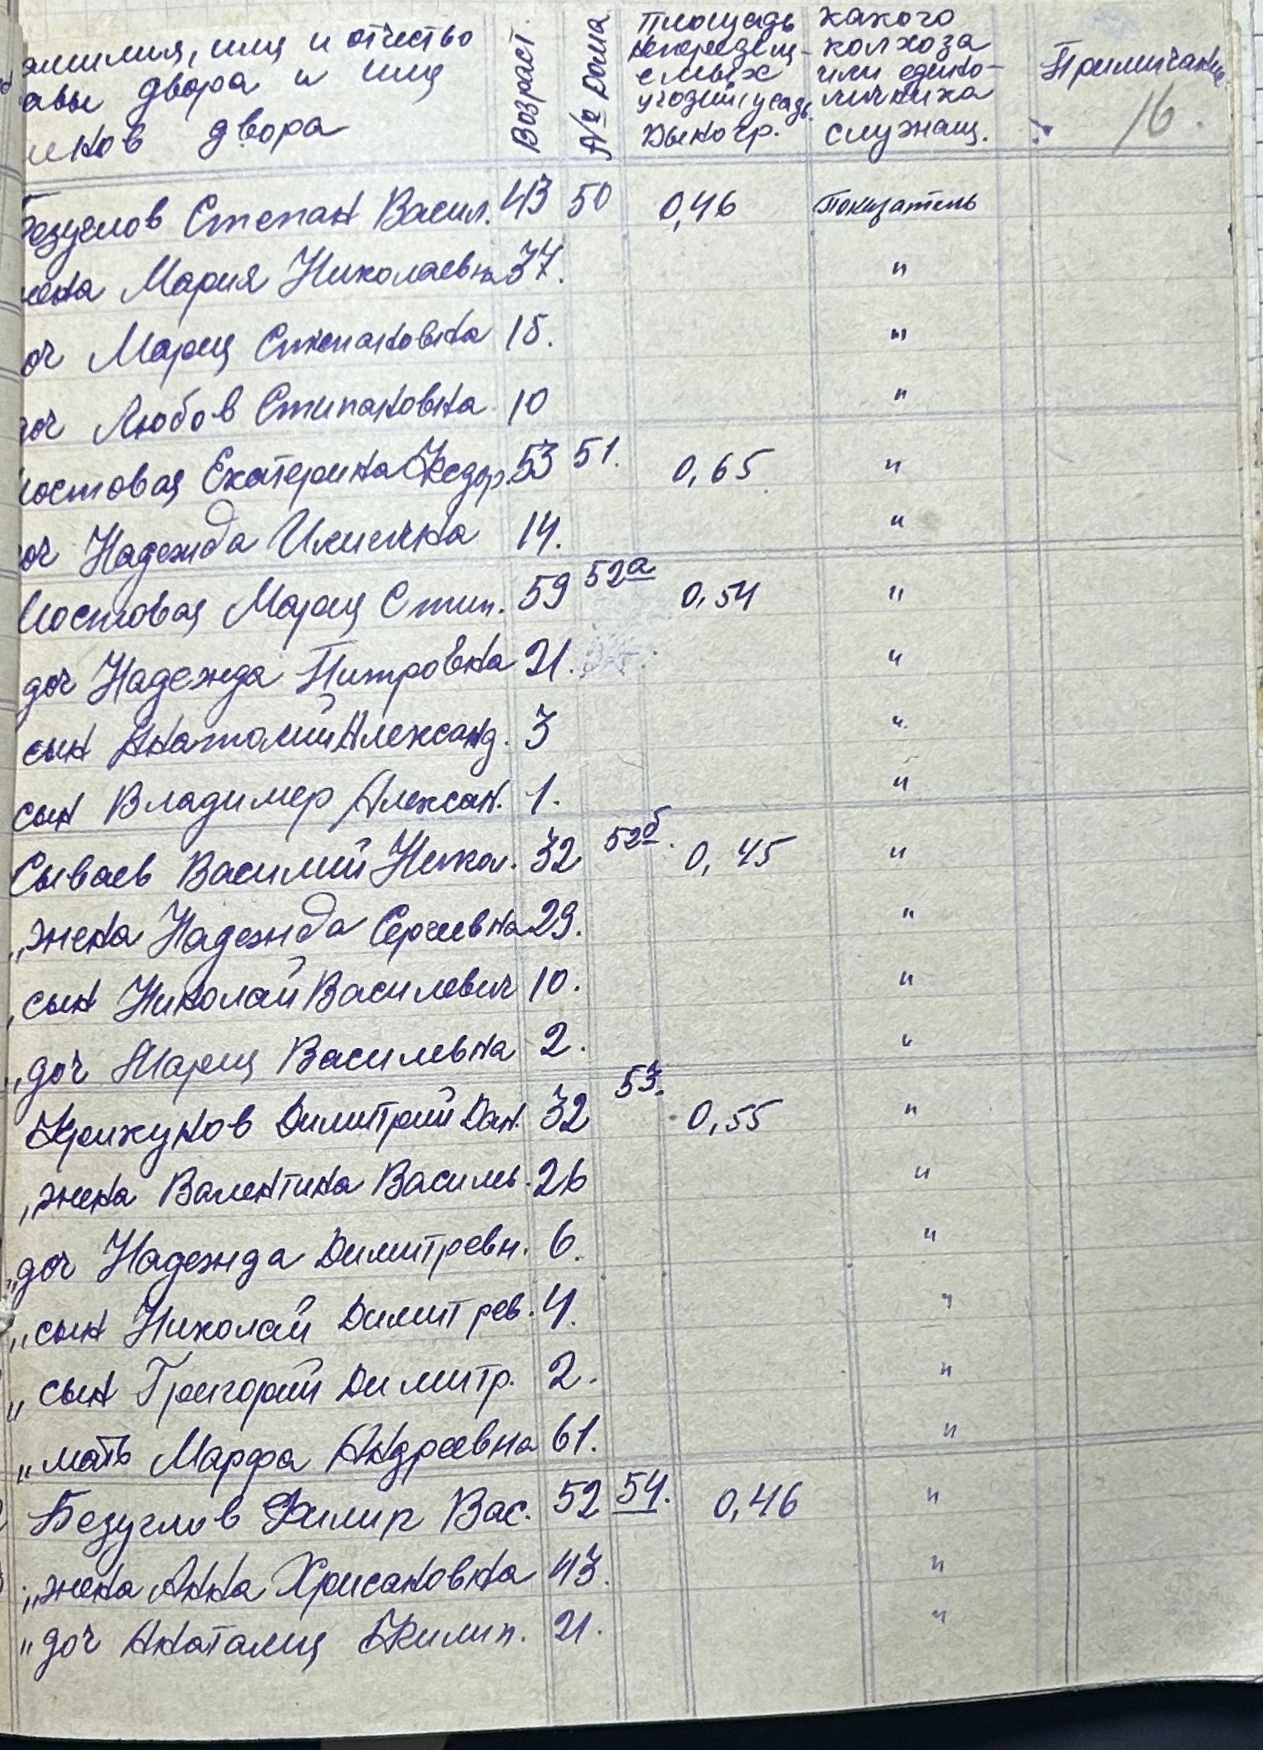 амилия, имя и отчество
авы двора и имя
инов двора
Возраст
№ Дома
Площадь
непередвиж-
емых
угодий (усадь
Дыко гр.
какого
колхоза
или едино-
личника
служащ.
Примичание
16.
Безуглов Степан Васил. 43 50 0,46 Показатель
жена Мария Николаевна 37. "
оч Мария Стипановна 15. "
доч Любов Стипановна 10 "
Мостовая Екатерина Федор. 53 51. 0,65 "
оч Надежда 14. "
Мостовая Мария Стип. 59 52а 0,54 "
доч Надежда Питровна 21. "
сын Анатолий Александ. 3 "
сын Владимер Алексан. 1. "
Сываев Василий Никол. 32 52б. 0,45 "
„жена Надежда Сергеевна 29. "
„сын Николай Василевич 10. "
„доч Мария Василевна 2. "
Крикунов Димитрий Дан. 32 53. 0,55 "
„жена Валентина Васильев. 26 "
„доч Надежда Димитревн. 6. "
„сын Николай Димитрев. 4. "
„сын Григорий Димитр. 2. "
„мать Марфа Андреевна 61. "
Безуглов Филип Вас. 52 54. 0,46 "
„жена Анна Хрисановна 43. "
„доч Анаталия Филип. 21. "